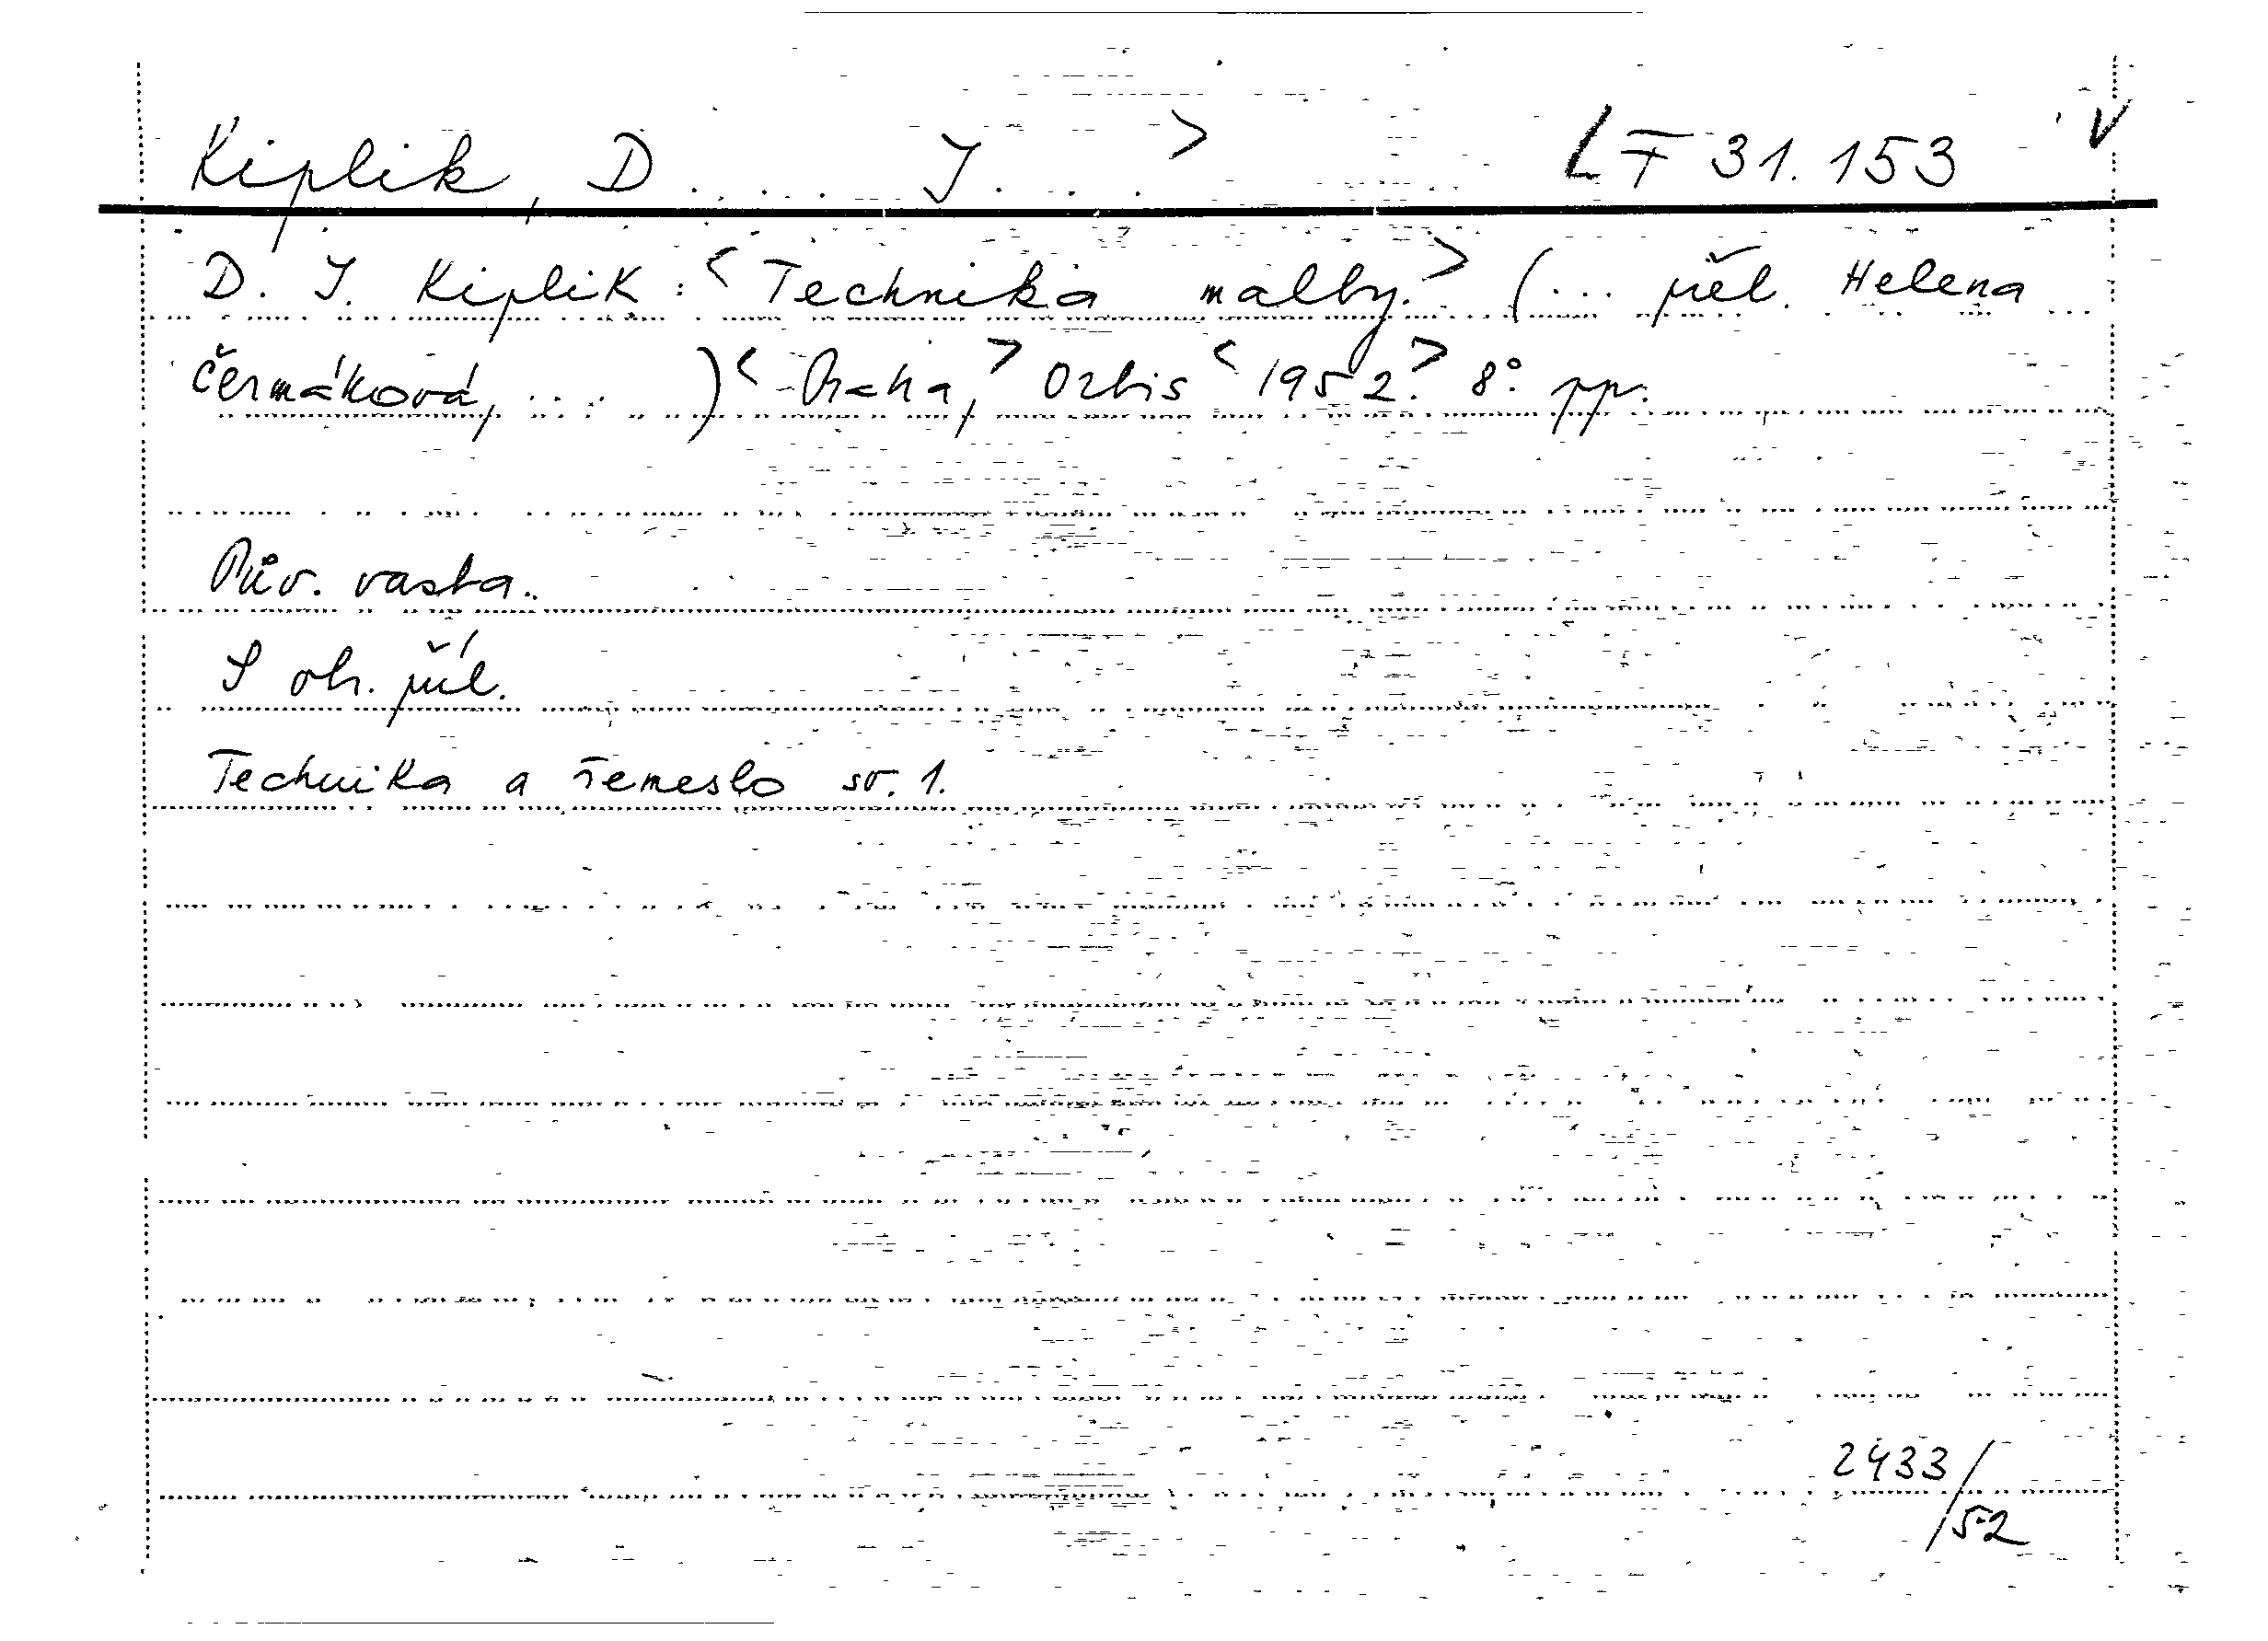 Kiplik, D . . . . J. . . . > LT 31.153 V
D. J. Kiplik: <Technika malby.> (... přel. Helena
Čermáková, ....) <Praha,> Orbis <1952.> 8° pp.
Pův. vazba.
S obr. příl.
Technika a řemeslo sv. 1.
2433/52